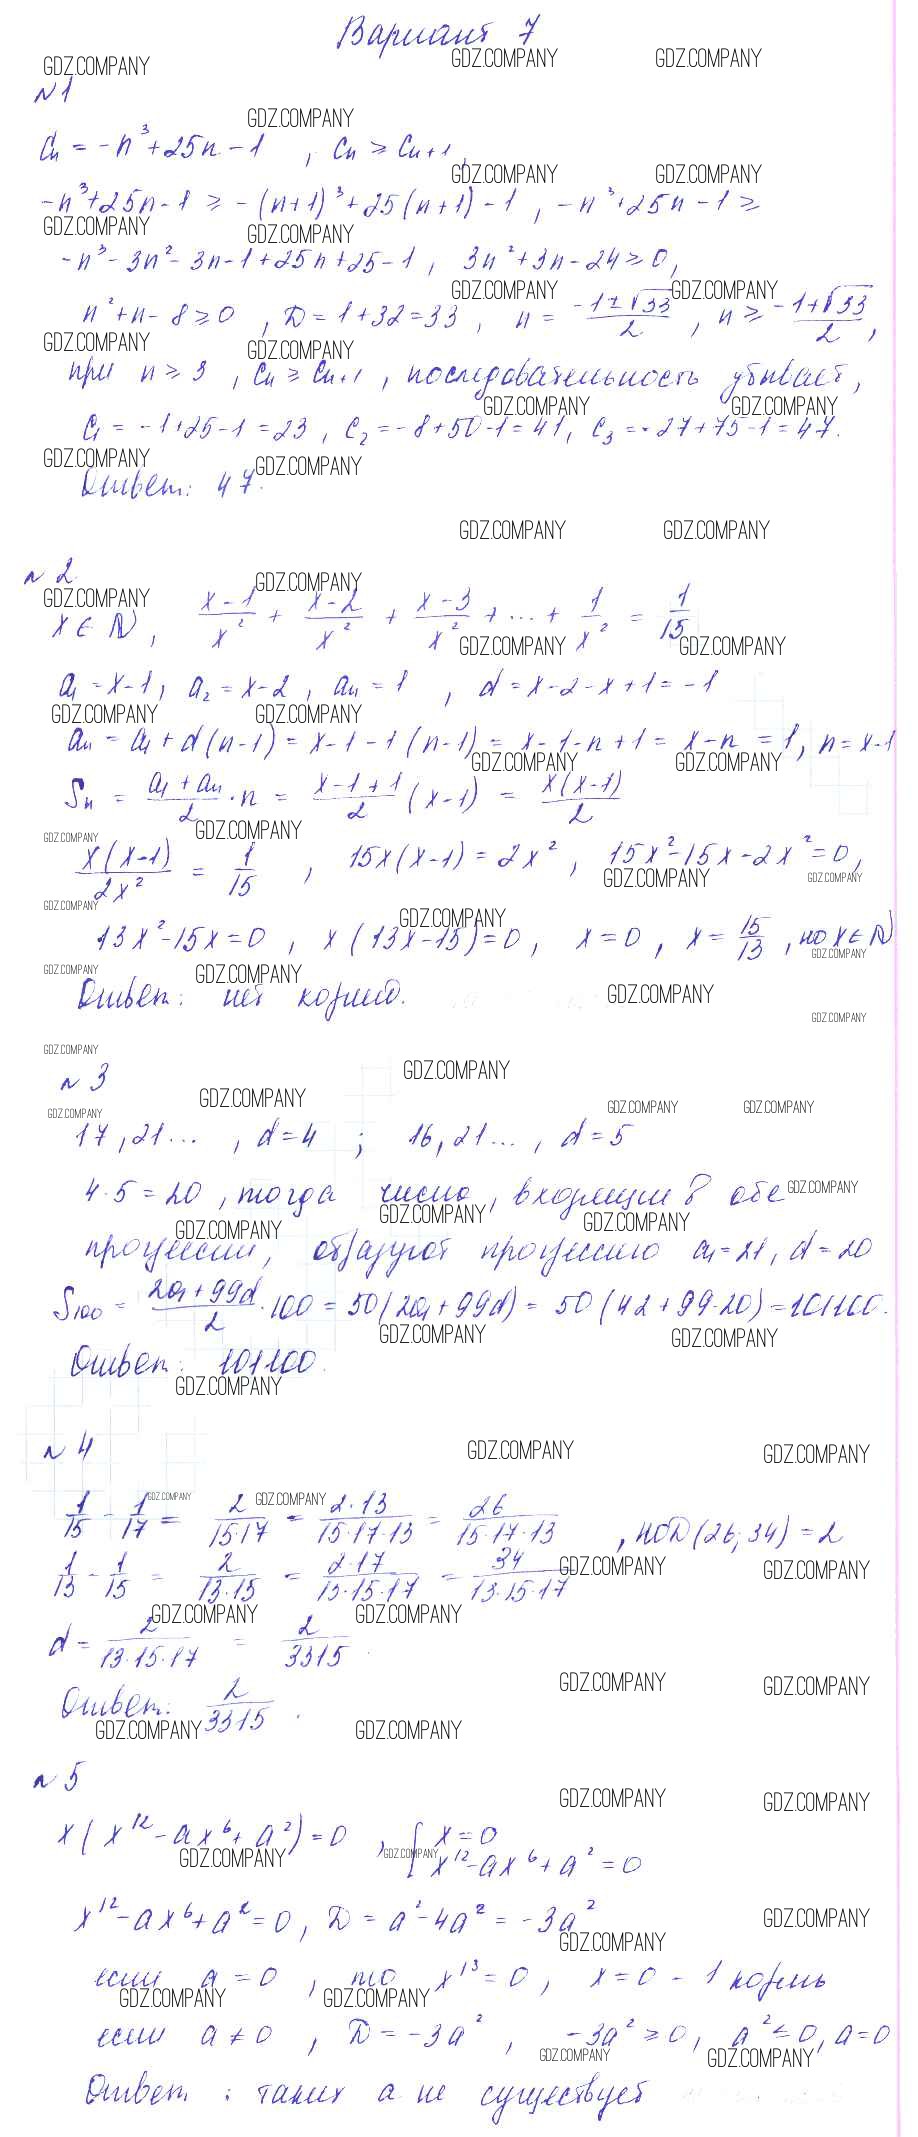 Вариант 7
№1
Cn = -n³+25n-1 , Cn ≥ Cn+1,
-n³+25n-1 ≥ -(n+1)³+25(n+1)-1 , -n³+25n-1 ≥
-n³-3n²-3n-1+25n+25-1, 3n²+3n-24≥0,
n²+n-8≥0 , D=1+32=33 , n = (-1±√33)/2 , n ≥ (-1+√33)/2 ,
при n≥3 , Cn ≥ Cn+1 , последовательность убывает,
C1 = -1+25-1=23, C2=-8+50-1=41, C3=-27+75-1=47.
Ответ: 47.
№2
x∈N, (x-1)/x² + (x-2)/x² + (x-3)/x² + ... + 1/x² = 1/15
a1=x-1, a2=x-2, an=1 , d=x-2-x+1=-1
an = a1+d(n-1) = x-1-1(n-1) = x-1-n+1 = x-n =1, n=x-1
Sn = (a1+an)/2·n = (x-1+1)/2 (x-1) = x(x-1)/2
x(x-1)/2x² = 1/15 , 15x(x-1)=2x², 15x²-15x-2x²=0,
13x²-15x=0, x(13x-15)=0, x=0, x=15/13, но x∈N
Ответ: нет корней.
№3
17,21... , d=4 ; 16,21..., d=5
4·5=20, тогда число, входящии в обе
прогрессии, образуют прогрессию a1=21, d=20
S100 = (2a1+99d)/2·100 = 50(2a1+99d) = 50(42+99·20)=101100.
Ответ: 101100.
№4
1/15 - 1/17 = 2/(15·17) = (2·13)/(15·17·13) = 26/(15·17·13) , НОД(26;34)=2
1/13 - 1/15 = 2/(13·15) = (2·17)/(13·15·17) = 34/(13·15·17)
d = 2/(13·15·17) = 2/3315.
Ответ: 2/3315.
№5
x(x¹²-ax⁶+a²)=0 , [x=0
x¹²-ax⁶+a²=0
x¹²-ax⁶+a²=0, D=a²-4a²=-3a²
если a=0 , то x¹³=0, x=0 - 1 корень
если a≠0 , D=-3a² , -3a²≥0, a²≤0, a=0
Ответ: таких a не существует
GDZ.COMPANY